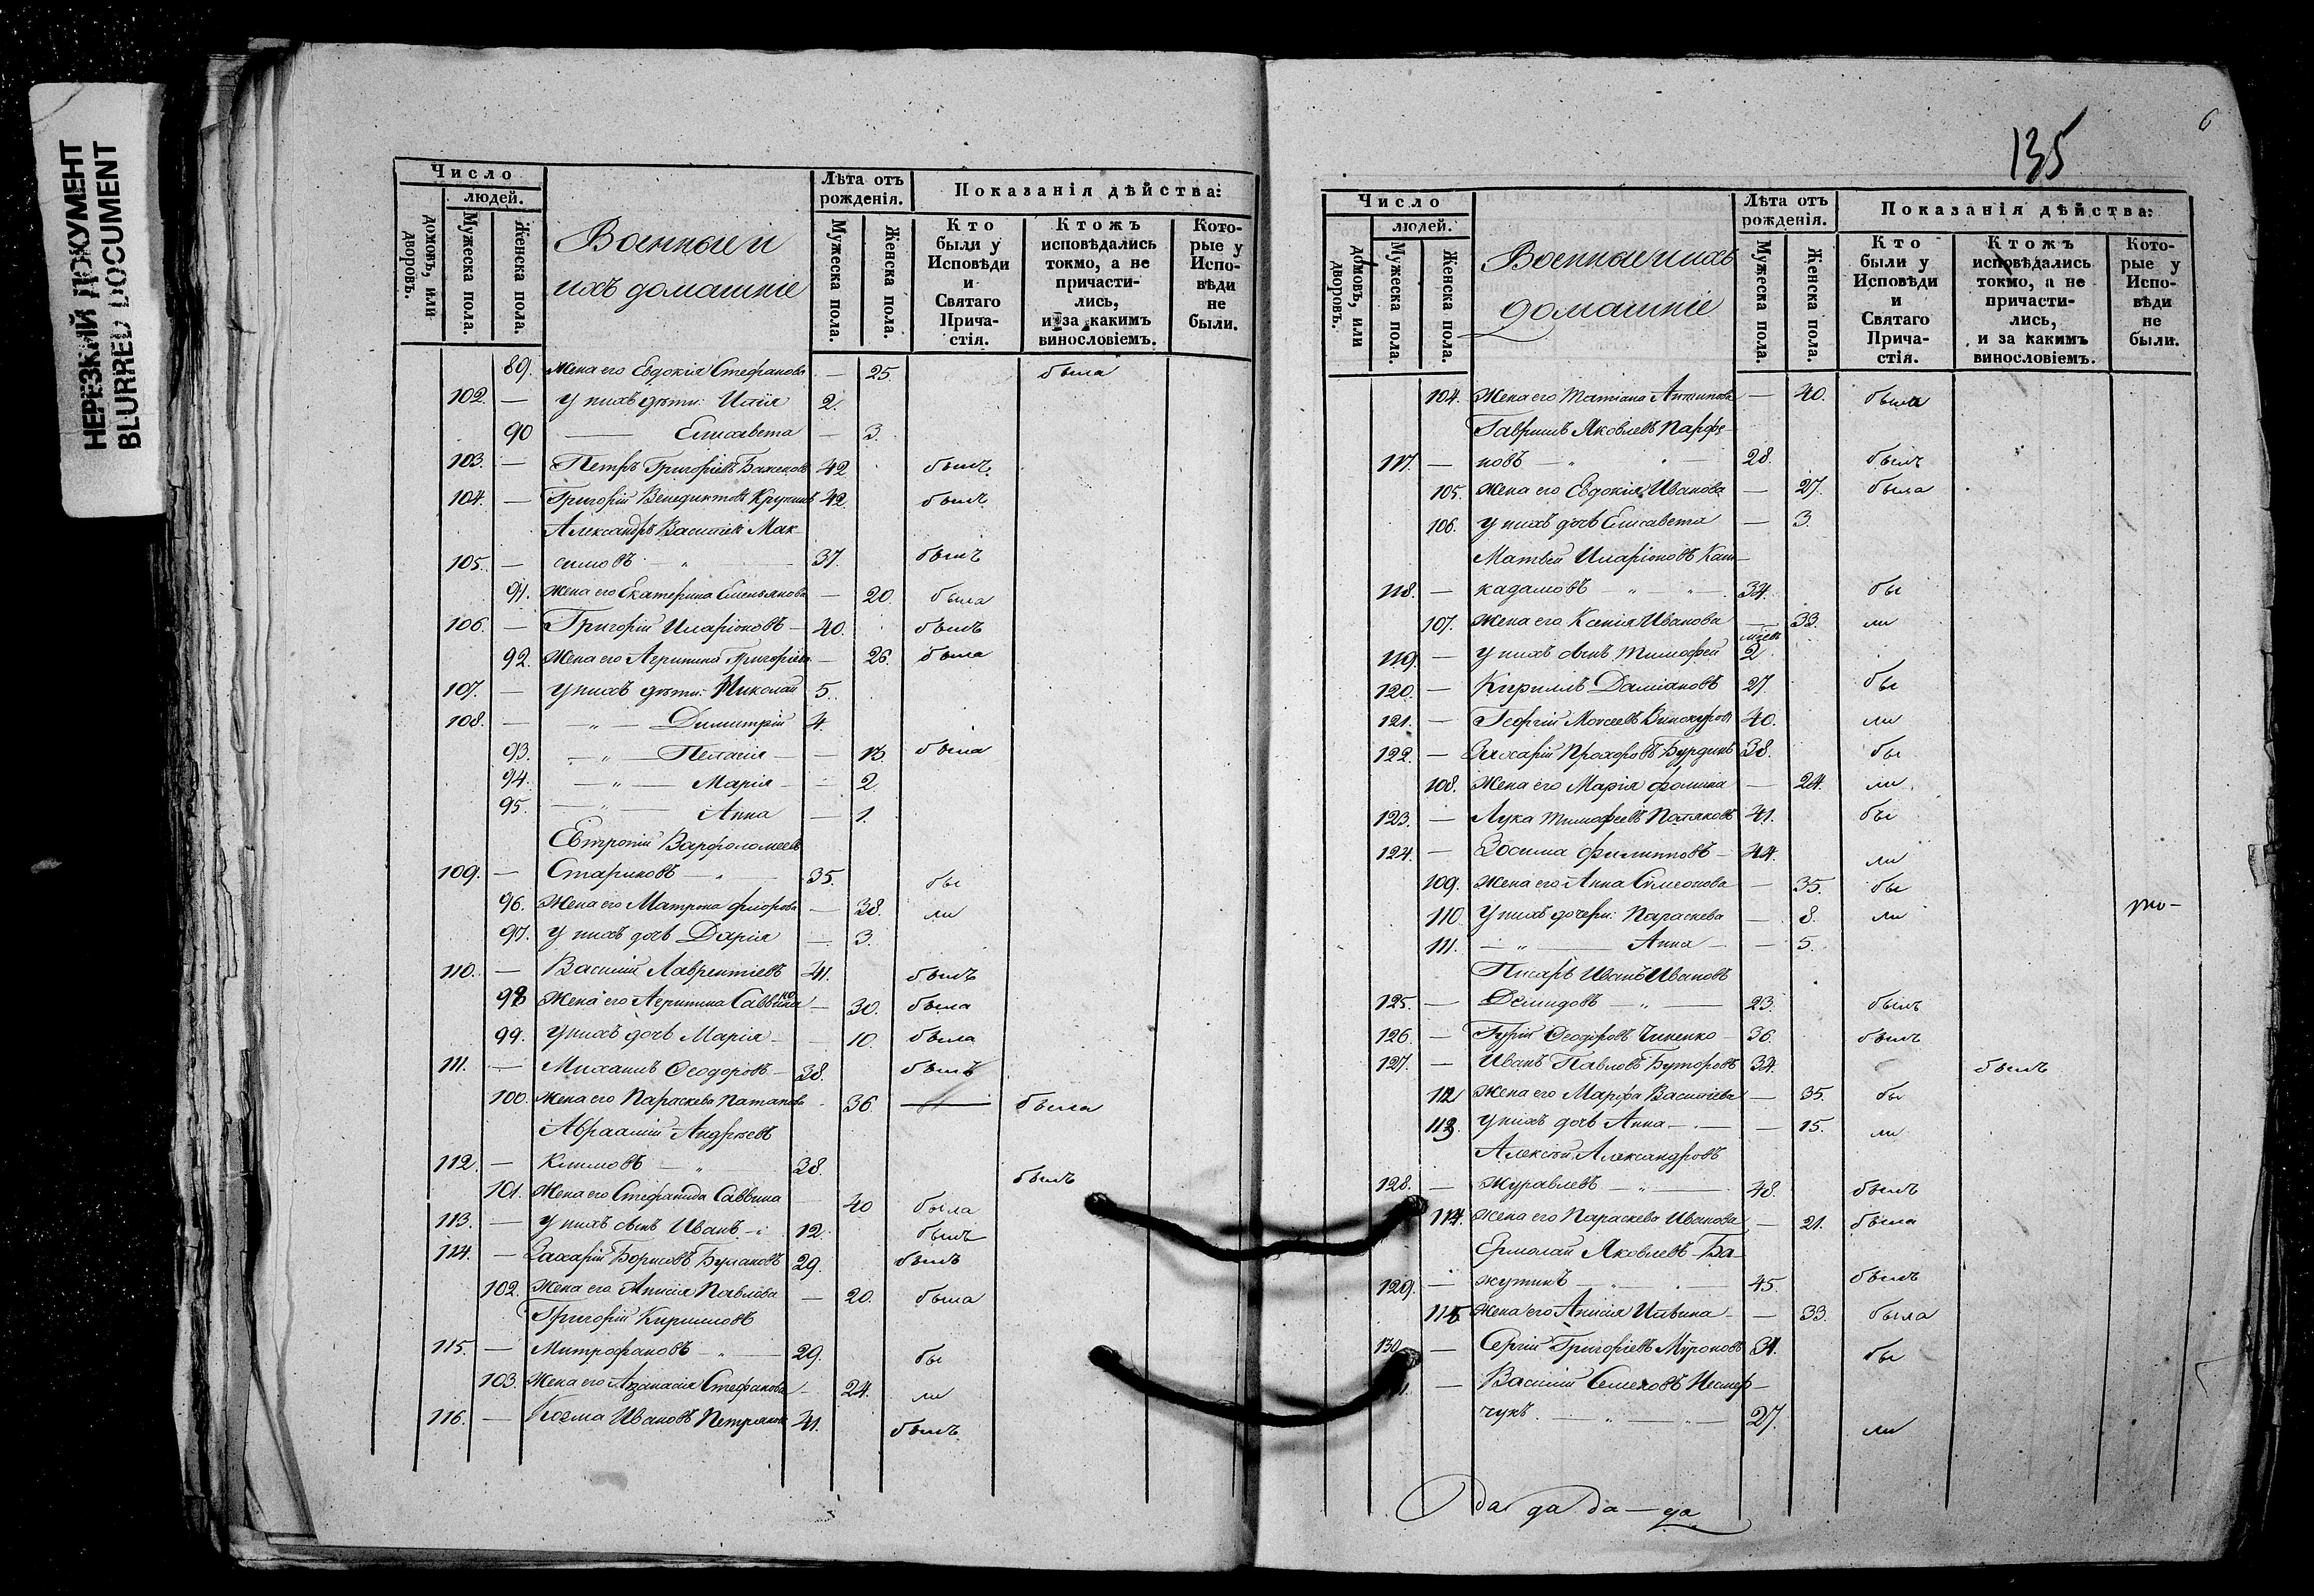 НЕРЕЗКИЙ ДОКУМЕНТ
BLURRED DOCUMENT
Число
людей.
домовъ, или дворовъ.
Мужеска пола.
Женска пола.
Военные и
ихъ домашніе
Лѣта отъ рожденія.
Мужеска пола.
Женска пола.
Показанія дѣйства:
Кто были у Исповѣди и Святаго Прича-стія.
Ктожъ исповѣдались токмо, а не причасти-лись, и за какимъ винословіемъ.
Кото-рые у Испо-вѣди не были.
89. Жена его Евдокія Стефанова — 25. была
102. — у нихъ дѣти: Илія 2.
90 — Елисавета — 3.
103. — Петръ Григоріевъ Баженовъ 42 былъ
104. — Григорій Венедиктовъ Крупинъ 42. былъ
Александръ Васильевъ Мак-
105. — симовъ — „ — 37. былъ
91. Жена его Екатерина Емельянова — 20. была
106. — Григорій Иларіоновъ — 40. былъ
92. Жена его Агрипина Григоріева — 26. была
107. — у нихъ дѣти: Николай 5.
108. — „ — Димитрій 4.
93. — „ — Пелагія — 13. была
94. — „ — Марія — 2.
95. — „ — Анна — 1.
Евтропій Варфоломеевъ
109. — Стариковъ — „ — 35. бы
96. Жена его Матрона Флорова — 38. ли
97. у нихъ дочь Дарія — 3.
110. — Василій Лаврентіевъ 41. былъ
98 Жена его Агрипина Саввина — 30. была
99. у нихъ дочь Марія — 10 была
111. — Михаилъ Ѳеодоровъ — 38. былъ
100. Жена его Параскева Патапова 36. — была
Авраамій Андреевъ
112. — Климовъ — „ 38. былъ
101. Жена его Стефанида Саввина 40 была
113. — у нихъ сынъ Иванъ 12. былъ
114. — Захарій Борисовъ Булановъ 29. былъ
102. Жена его Анисія Павлова — 20. была
Григорій Кирилловъ
115. — Митрофановъ — „ — 29. бы
103. Жена его Аѳанасія Стефанова — 24. ли
116. — Козма Ивановъ 41. былъ
135
6
Число
людей.
домовъ, или дворовъ.
Мужеска пола.
Женска пола.
Военные и ихъ
домашніе
Лѣта отъ рожденія.
Мужеска пола.
Женска пола.
Показанія дѣйства:
Кто были у Исповѣди и Святаго Прича-стія.
Ктожъ исповѣдались токмо, а не причасти-лись, и за какимъ винословіемъ.
Кото-рые у Испо-вѣди не были.
104. Жена его Татіана Антипова — 40. была
Гавріилъ Яковлевъ Парфе-
117. — новъ — „ — 28. былъ
105. Жена его Евдокія Иванова — 27. была
106. у нихъ дочь Елисавета — 3.
Матвей Иларіоновъ
118. — „ „ — 34. бы
107. Жена его Ксенія Иванова — 33. ли
119. — у нихъ сынъ Тимофей 2
120. — Кириллъ Даміановъ 27. бы
121. — Георгій Моисеевъ Винокуровъ 40. ли
122. — Захарій Прохоровъ Бурдинъ 38. бы
108. Жена его Марія Фомина — 24. ли
123. — Лука Тимофеевъ 41. бы
124. — Зосима Филипповъ — 44. ли
109. Жена его Анна Симеонова — 35. бы
110 у нихъ дочери: Параскева — 8. ли
111. — „ — Анна — 5.
Писарь Иванъ Ивановъ
125. — Демидовъ — „ — 23. былъ
126. — Гурій Ѳеодоровъ Чиненко — 36. былъ
127. — Иванъ Павловъ Буторовъ 34. былъ
112 Жена его Марфа Василіева — 35. бы
113. у нихъ дочь Анна — 15. ли
Алексѣй Александровъ
128. — Журавлевъ — „ — 48. былъ
114. Жена его Параскева Иванова — 21. была
Ермолай Яковлевъ Ба-
129. — жутинъ — „ — 45. былъ
115 Жена его Анисія Ильина — 33. была
130 — Сергій Григоріевъ Мѵроновъ 31. бы
Василій Семеновъ
чукъ — „ — 27. ли
Да да да — да